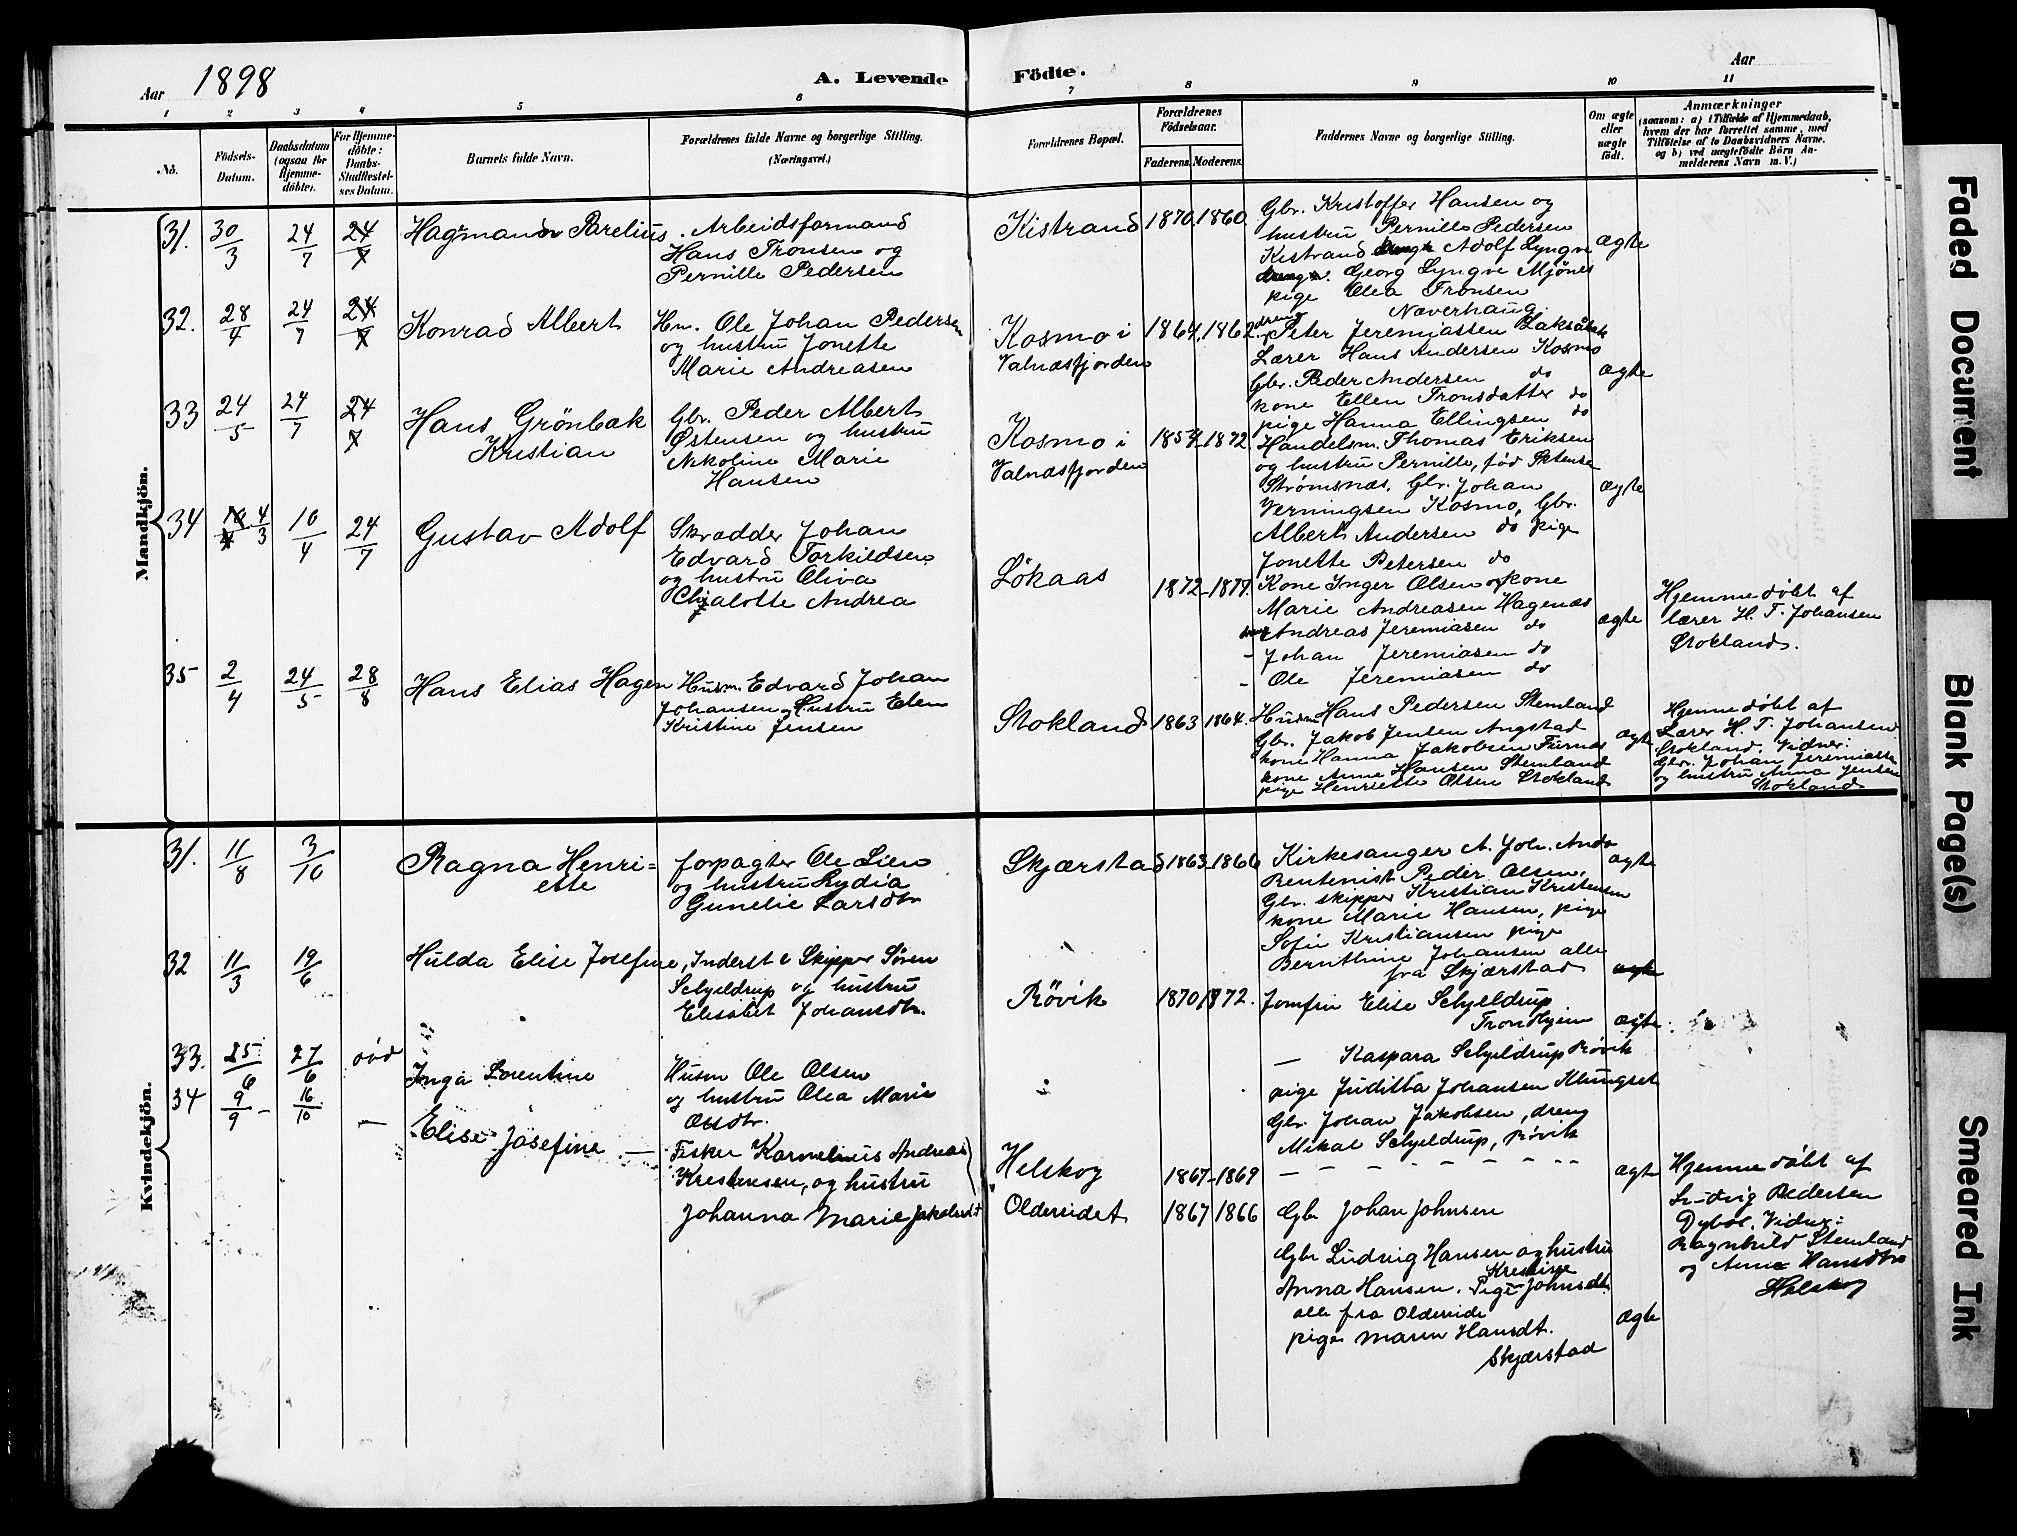 Aar 1898
A. Levende Födte.
Aar
1 2 3 4 5 6 7 8 9 10 11
No.
Födsels-Datum.
Daabsdatum (ogsaa for Hjemmedöbte).
For Hjemmedöbte: Daabs-Stadfæstelses Datum.
Barnets fulde Navn.
Forældrenes fulde Navne og borgerlige Stilling.
(Næringsvei.)
Forældrenes Bopæl.
Forældrenes Födselsaar.
Faderens. Moderens.
Faddernes Navne og borgerlige Stilling.
Om ægte eller uægte födt.
Anmærkninger
(saasom: a) i Tilfælde af Hjemmedaab,
hvem der har forrettet samme, med
Tilföielse af to Daabsvidners Navne,
og b) ved uægtefödte Börn Anmelderens Navn m. V.)
Mandkjön.
31. 30/3 24/7 24/7
Parelius
Arbeidsformand
Hans Tronsen og
Pernille Pedersen
Kistrand 1870. 1860.
Gbr. Kristoffer Hansen og
hustru Pernille Pedersen
Kistrand Adolf Lyngve
Georg Lyngve Mjönes
pige Olea Tronsen
Næverhaug
ægte
32. 28/4 24/7 24/7
Konrad Albert
Hm. Ole Johan Pedersen
og hustru Jonette
Marie Andreasen
Kosmo i
Valnæsfjorden
1864. 1862.
dreng
Peter Jeremiassen
Lærer Hans Andersen Kosmo
Gbr. Peder Andersen do
kone Ellen Tronsdatter do
pige Hanna Ellingsen do
ægte
33 24/5 24/7 24/7
Hans Grönbak
Kristian
Gbr. Peder Albert
Østensen og hustru
Nikoline Marie
Hansen
Kosmo i
Valnæsfjorden
1854 1872.
Handelsm. Thomas Eriksen
og hustru Pernille, fød
Strømsnæs, Gbr. Johan
Verningsen Kosmo, Gbr.
Albert Andersen do pige
Jonette Petersen do
ægte
34 4/3 10/4 24/7
Gustav Adolf
Skrædder Johan
Edvard Torkildsen
og hustru Oliva
Andrea
Lökaas
1872-1879.
Kone Inger Olsen og kone
Marie Andreasen Hagenæs
Andreas Jeremiasen do
- Johan Jeremiasen do
- Ole Jeremiasen do
ægte
Hjemmedöbt af
lærer H. T. Johansen
Stokland.
35 2/4 24/5 28/8
Hans Elias Hagen
Husm. Edvard Johan
Johansen og Hustru Elen
Kristine Jensen
Stokland 1863 1864.
Husm Hans Pedersen Stemland
Gbr. Jakob Jensen Angstad
kone Hanna Jakobsen Furnæs
kone Anne Hansen Stemland
pige Henriette Olsen Stokland
ægte
Hjemmedöbt af
Lærer H. T. Johansen
Stokland. Vidner:
Gbr. Johan Jeremiassen
og hustru Anna Jensen
Stokland
Kvindekjön.
31. 11/8 3/10
Ragna Henri=
ette
forpagter Ole Lien
og hustru Lydia
Gunelie Larsdtr
Skjærstad 1863-1866
Kirkesanger A. Joh.
Rentenist Peder Olsen,
Gbr. skipper Kristian Kristensen
kone Marie Hansen, pige
Sofie Kristiansen pige
Bernthine Johansen alle
fra Skjærstad
ægte
ægte
32 11/3 19/6
Hulda Elise Josefine,
Inderst & Skipper Sören
Schjeldrup og hustru
Elisabet Johansdtr.
Rövik 1870 1872.
Jomfru Elise Schjeldrup
Trondhjem
ægte
- Kaspara Schjeldrup Rövik
pige Juditta Johansen Klungset
Gbr. Johan Jakobsen, dreng
Mikal Schjeldrup, Rövik
33. 25/6 27/6 död
Inga Lorentine
Husm Ole Olsen
og hustru Olea Marie
Olsdtr.
Helskog 1867-1869
ægte
Hjemmedöbt af
Ludvig Pedersen
Vidner:
Ragnhild Stemland
og Anne Hansdtr
Helskog
34 9/9 - 16/10 -
Elise Josefine -
Fisker Kornelius Andreas
Kristensen, og hustru
Johanna Marie
Oldereidet 1867 1866
Gbr Johan Johnsen
Gbr Ludvig Hansen og hustru
Kristine
Anna Hansen. Pige Johnsdt.
alle fra Oldereide
pige Maren Hansdt.
Skjærstad
ægte
Faded Document
Blank Page(s)
Smeared Ink